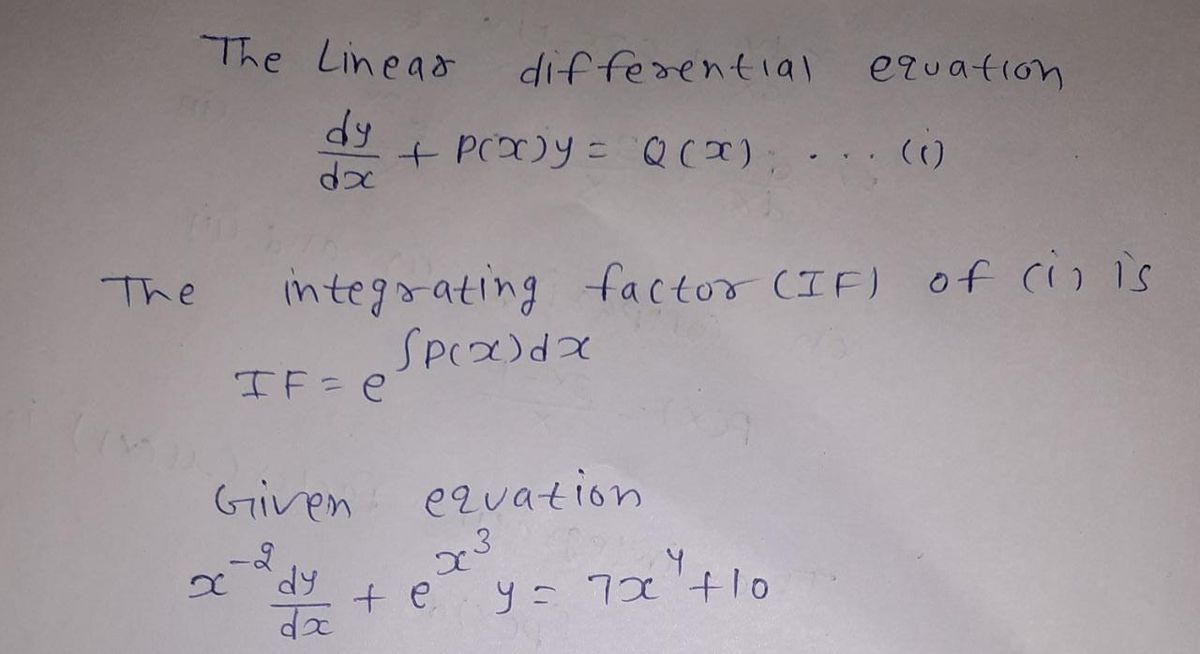 The Linear differential equation
dy/dx + P(x)y = Q(x) .... (i)
The integrating factor (IF) of (i) is
IF = e^∫P(x)dx
Given equation
x^-2 dy/dx + e^x^3 y = 7x^4 + 10